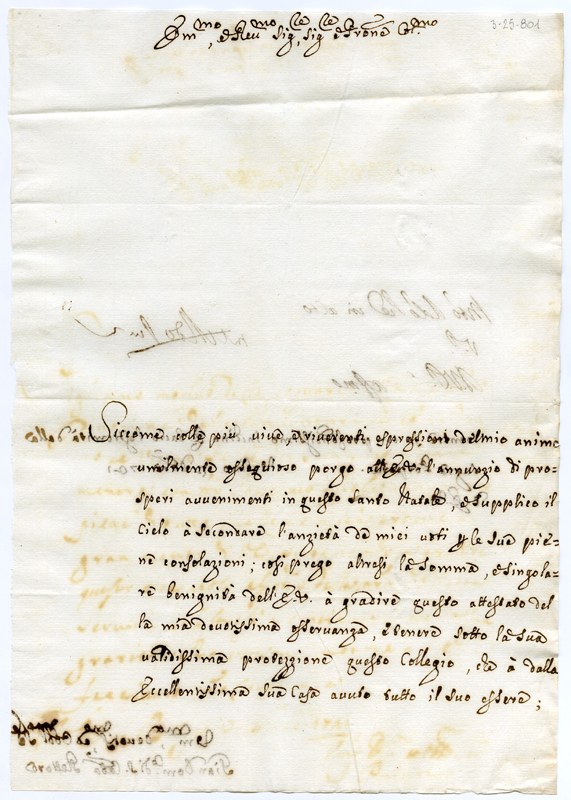 3-25-801
Em.mo, e Reu.mo Sig.re, Sig.re e Prone Col.mo
Siccome colle più vive e riverenti espressioni del mio animo
umilmente ossequioso porgo all'E.V. l'annunzio di pro-
speri avvenimenti in questo Santo Natale, e supplico il
Cielo à secondare l'anzietà de miei voti p le sue pie-
ne consolazioni; così prego altresì la somma, e singola-
re benignità dell'E.V. à gradire questo attestato del
la mia devotissima osservanza, e tenere sotto la sua
validissima protezzione questo Collegio, che à dalla
Eccellentissima sua Casa avuto tutto il suo essere;